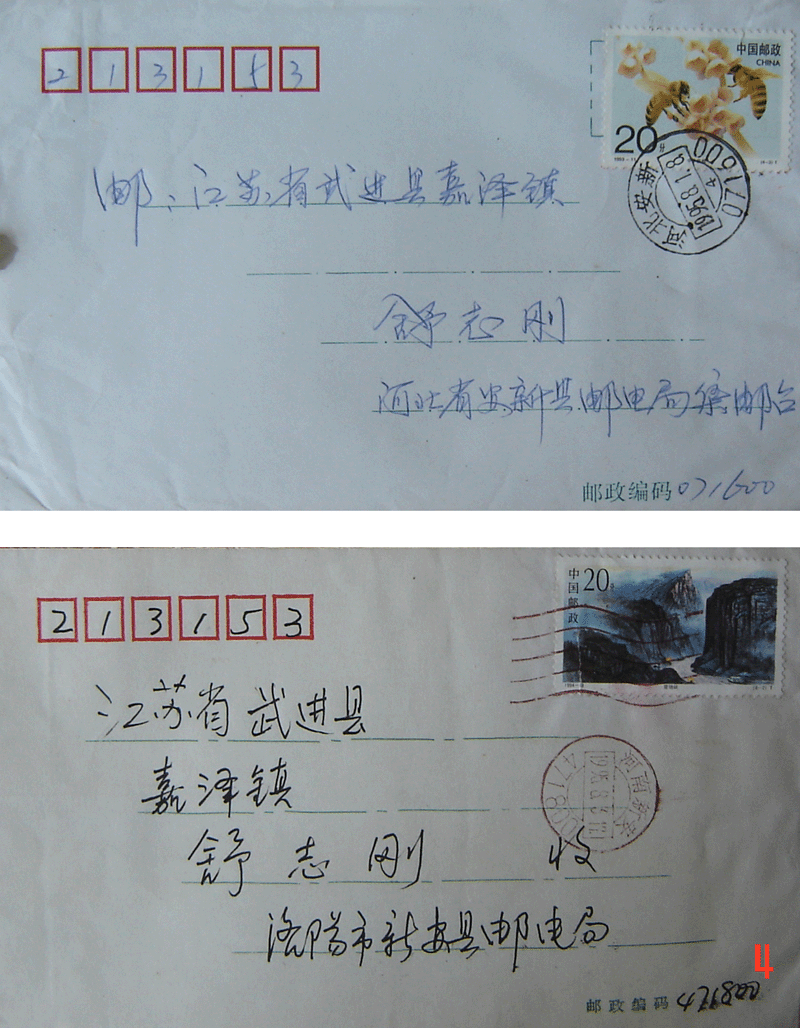 213153
中国邮政
CHINA
20分
071600
1995.8.1.8
河北安新
邮:江苏省武进县嘉泽镇
舒志刚
河北省安新县邮电局集邮台
邮政编码071600
213153
中国邮政
20分
江苏省武进县
嘉泽镇
舒志刚 收
471800
河南新安
洛阳市新安县邮电局
邮政编码471800
4